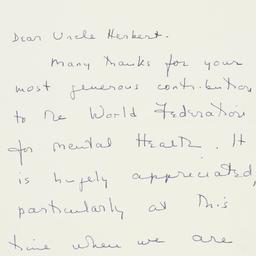 Dear Uncle Herbert.
Many thanks for your
most generous contribution
to the World Federation
for Mental Health. It
is hugely appreciated,
particularly at this
time when we are